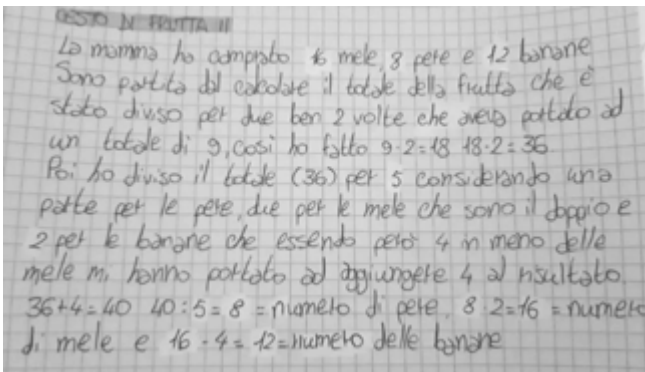 CESTO DI FRUTTA II
La mamma ha comprato 16 mele, 8 pere e 12 banane
Sono partita dal calcolare il totale della frutta che è
stato diviso per due ben 2 volte che aveva portato ad
un totale di 9, così ho fatto 9·2=18 18·2=36
Poi ho diviso il totale (36) per 5 considerando una
parte per le pere, due per le mele che sono il doppio e
2 per le banane che essendo però 4 in meno delle
mele mi hanno portato ad aggiungere 4 al risultato.
36+4=40 40:5=8=numero di pere. 8·2=16=numero
di mele e 16-4=12=numero delle banane